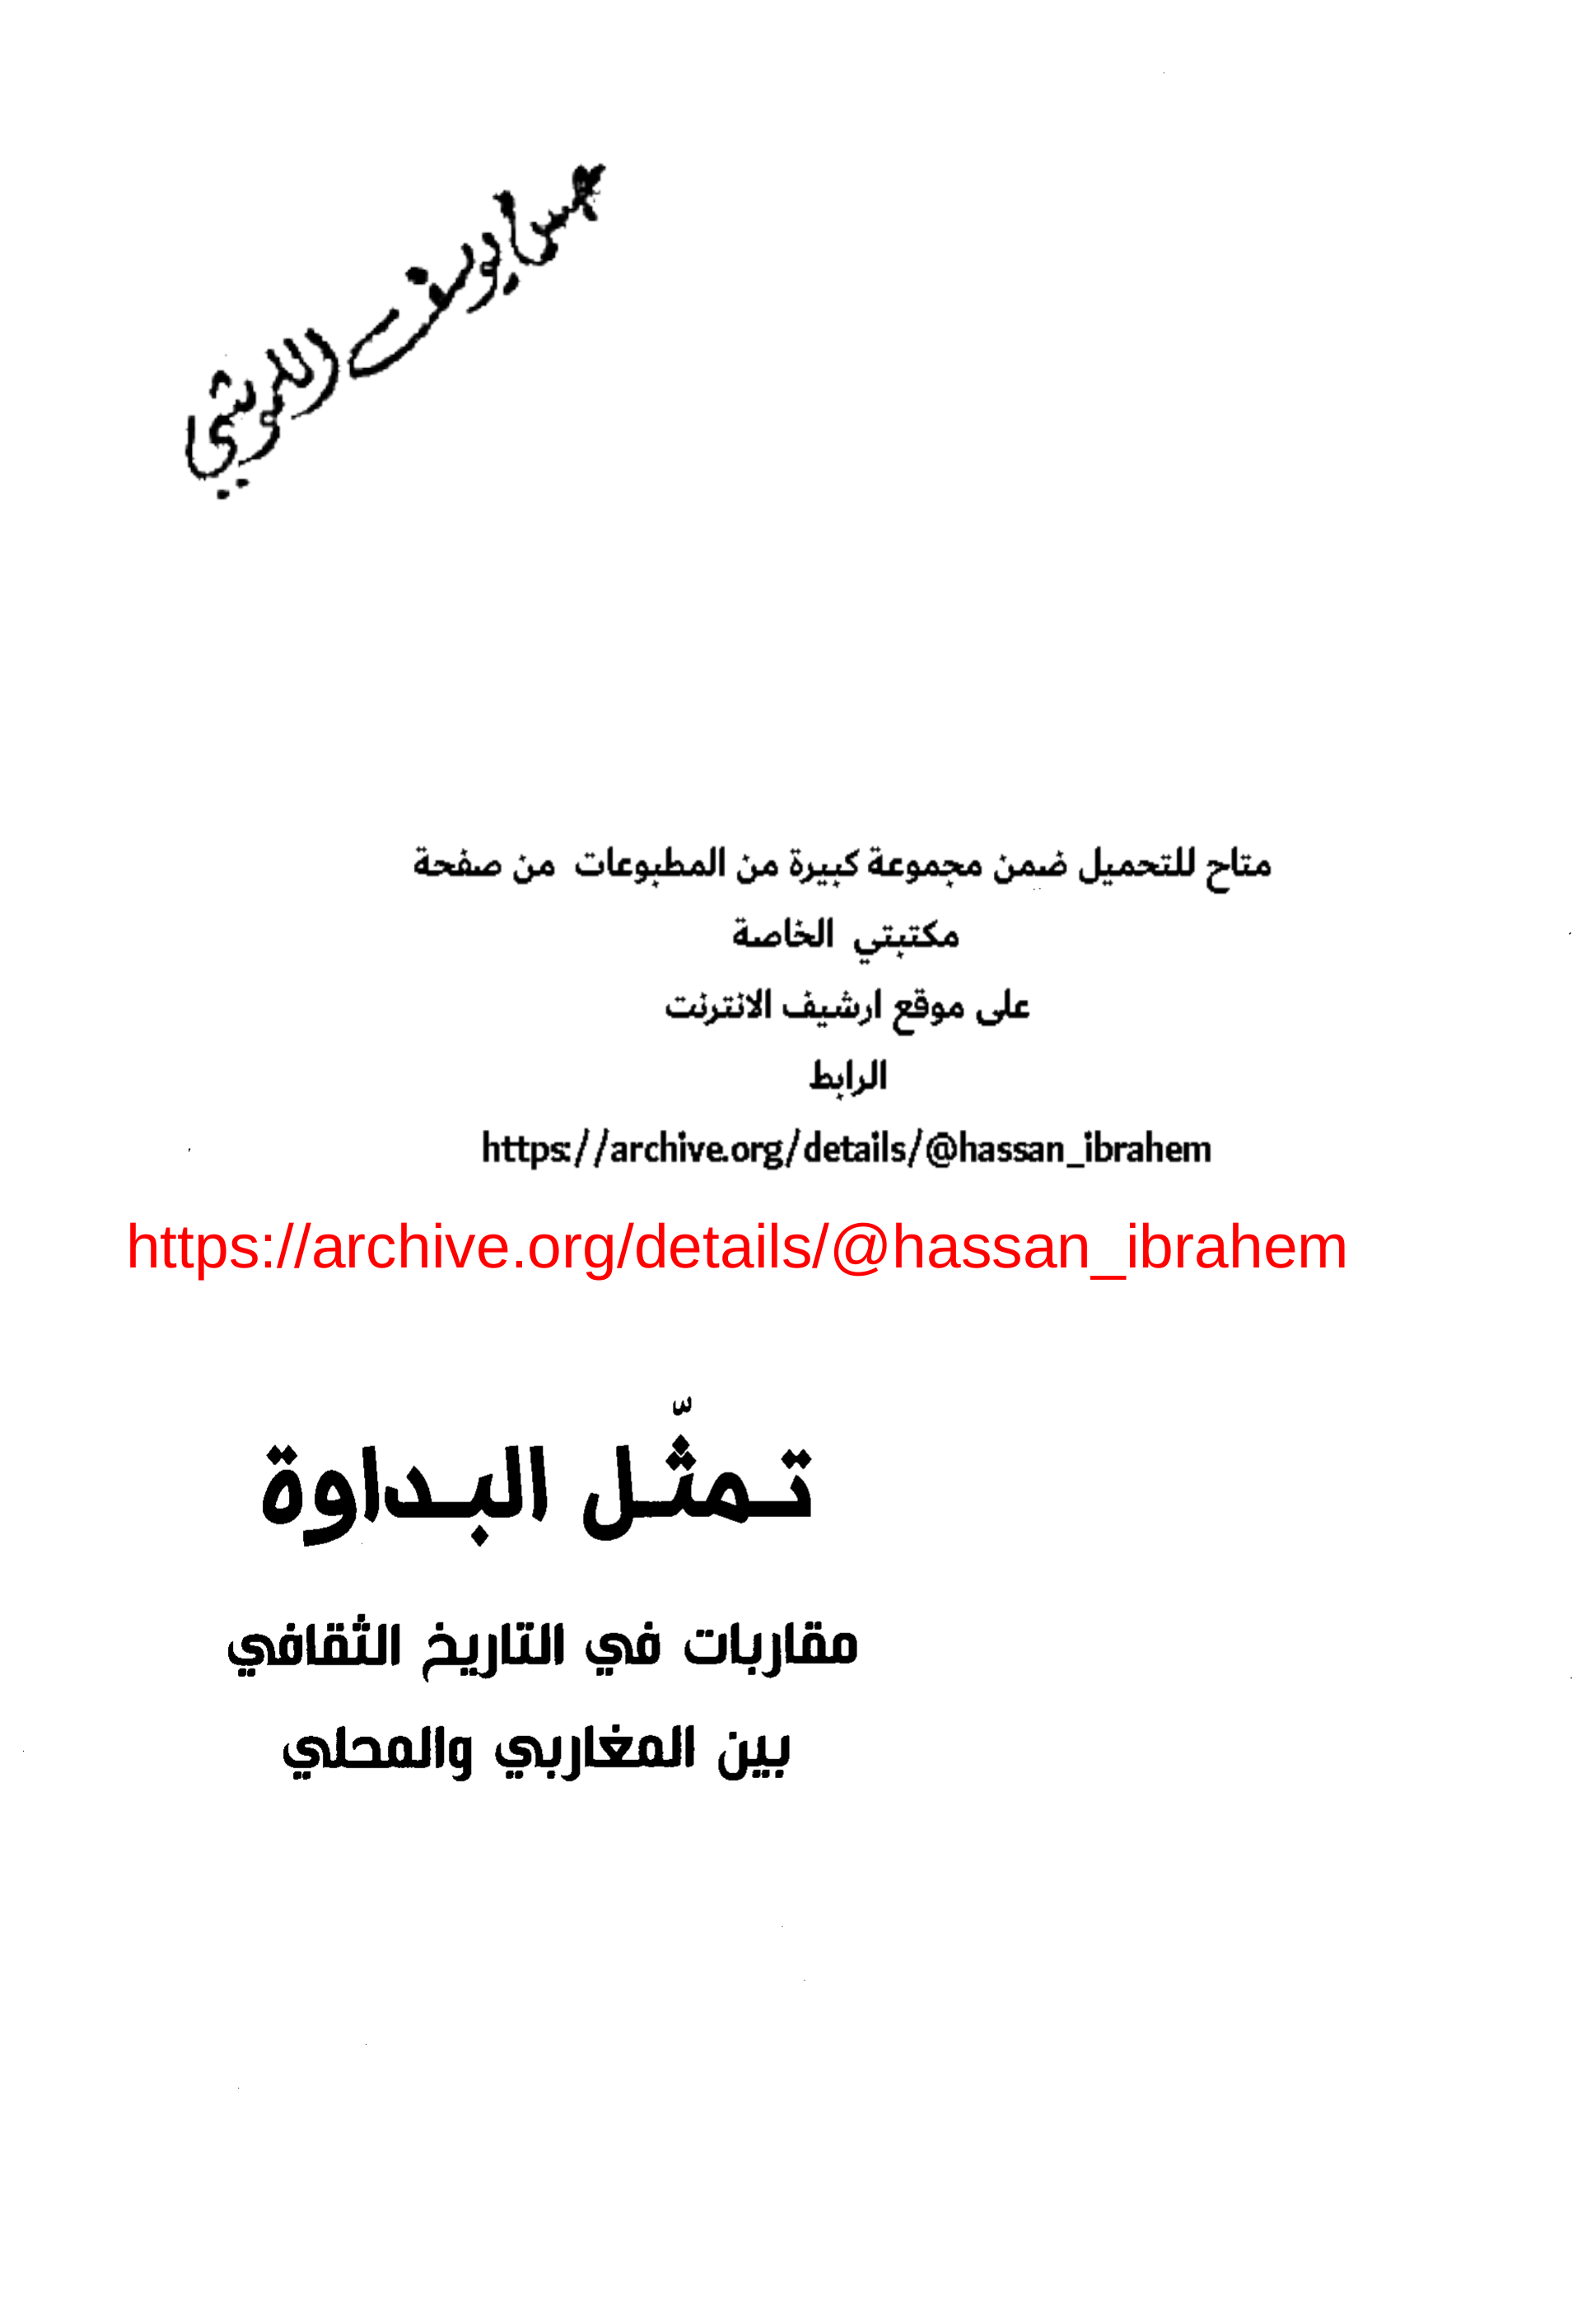 متاح للتحميل ضمن مجموعة كبيرة من المطبوعات من صفحة
مكتبتي الخاصة
على موقع ارشيف الانترنت
الرابط
https://archive.org/details/@hassan_ibrahem
https://archive.org/details/@hassan_ibrahem
تمثّل البداوة
مقاربات في التاريخ الثقافي
بين المغاربي والمحلي